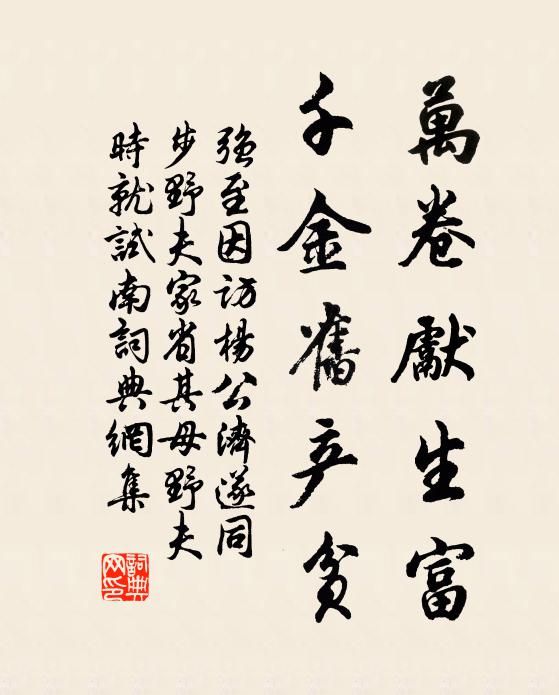 萬卷獻生富
千金舊产貧
強至因访楊公濟遂同
步野夫家省其母野夫
時就試南詞典網集
詞典网印